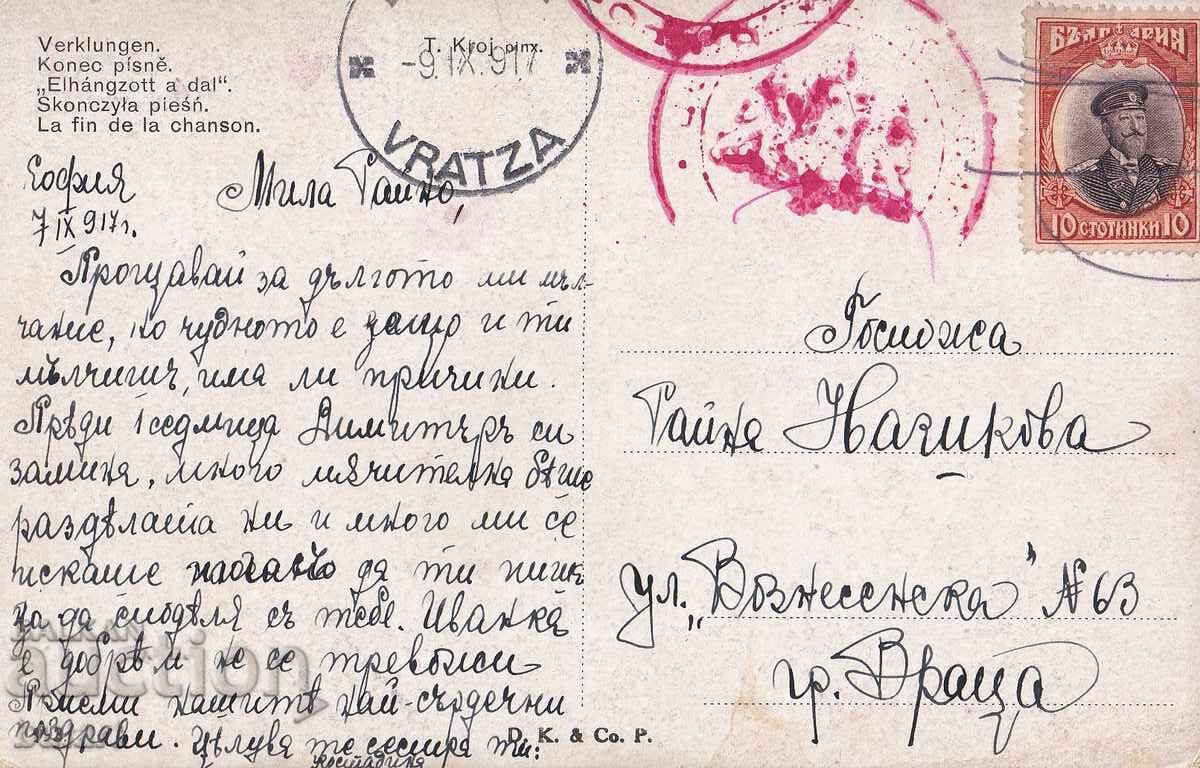 Verklungen.
Konec písně.
„Elhángzott a dal“.
Skonczyła pieśń.
La fin de la chanson.
T. Kroj pinx.
-9.IX.917
VRATZA
БЪЛГАРИЯ
10 СТОТИНКИ 10
София
7 IX 917 г.
Мила Райно,
Прощавай за дългото ми мъл-
чание, но чудното е защо и ти
мълчишъ, има ли причини.
Прѣди 1 седмица Димитъръ си
замина, много мѫчителна бѣше
раздѣлата ни и много ми се
искаше тогавъ да ти пиша
за да сподѣля съ тебе. Иванка
е добрѣ и не се тревожи
Приеми нашитѣ най-сърдечни
поздрави. Цѣлува те сестра ти:
Костадина
Госпожа
Райна Начикова
ул. „Вознесенска“ № 63
гр. Враца
D. K. & Co. P.
BALKAN
auction